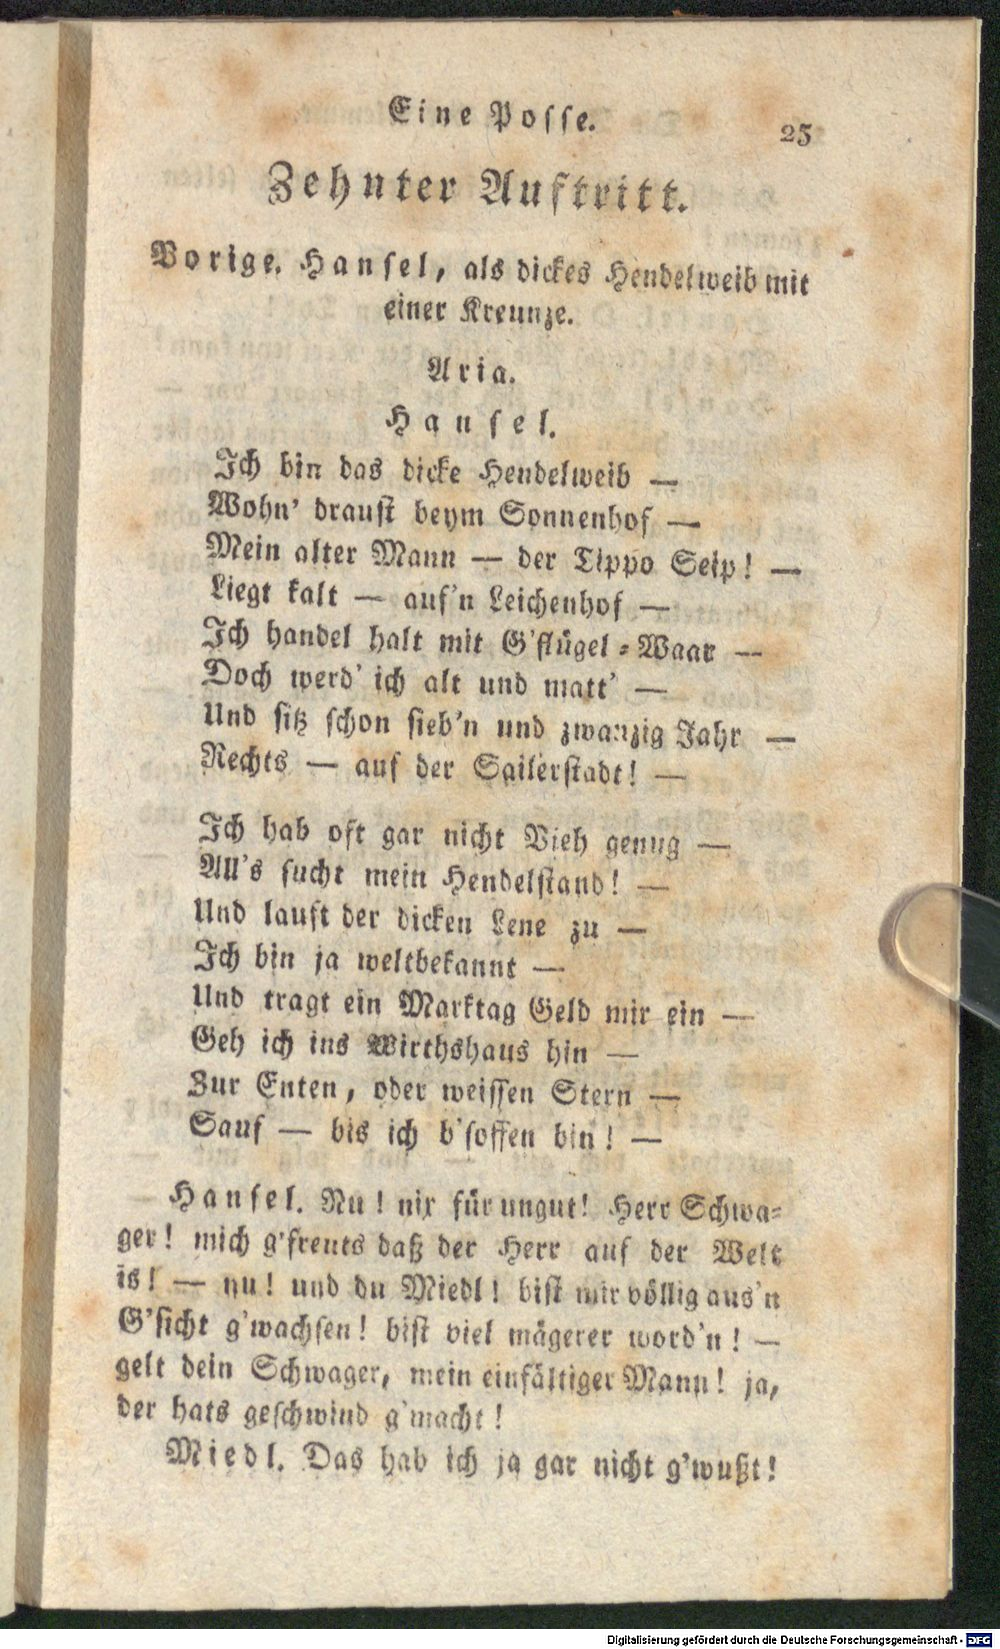 Eine Posse.
25
Zehnter Auftritt.
Vorige. Hansel, als dickes Hendelweib mit
einer Kreunze.
Aria.
Hansel.
Ich bin das dicke Hendelweib —
Wohn' draust beym Sonnenhof —
Mein alter Mann — der Tippo Seip! —
Liegt kalt — auf'n Leichenhof —
Ich handel halt mit G'flügel-Waar —
Doch werd' ich alt und matt' —
Und sitz schon sieb'n und zwanzig Jahr —
Rechts — auf der Sailerstadt! —
Ich hab oft gar nicht Vieh genug —
All's sucht mein Hendelstand! —
Und lauft der dicken Lene zu —
Ich bin ja weltbekannt —
Und tragt ein Marktag Geld mir ein —
Geh ich ins Wirthshaus hin —
Zur Enten, oder weissen Stern —
Sauf — bis ich b'soffen bin! —
Hansel. Nu! nix für ungut! Herr Schwa-
ger! mich g'freuts daß der Herr auf der Welt
is! — nu! und du Miedl! bist mir völlig aus'n
G'sicht g'wachsen! bist viel mägerer word'n! —
gelt dein Schwager, mein einfältiger Mann! ja,
der hats geschwind g'macht!
Miedl. Das hab ich ja gar nicht g'wußt!
Digitalisierung gefördert durch die Deutsche Forschungsgemeinschaft - DFG